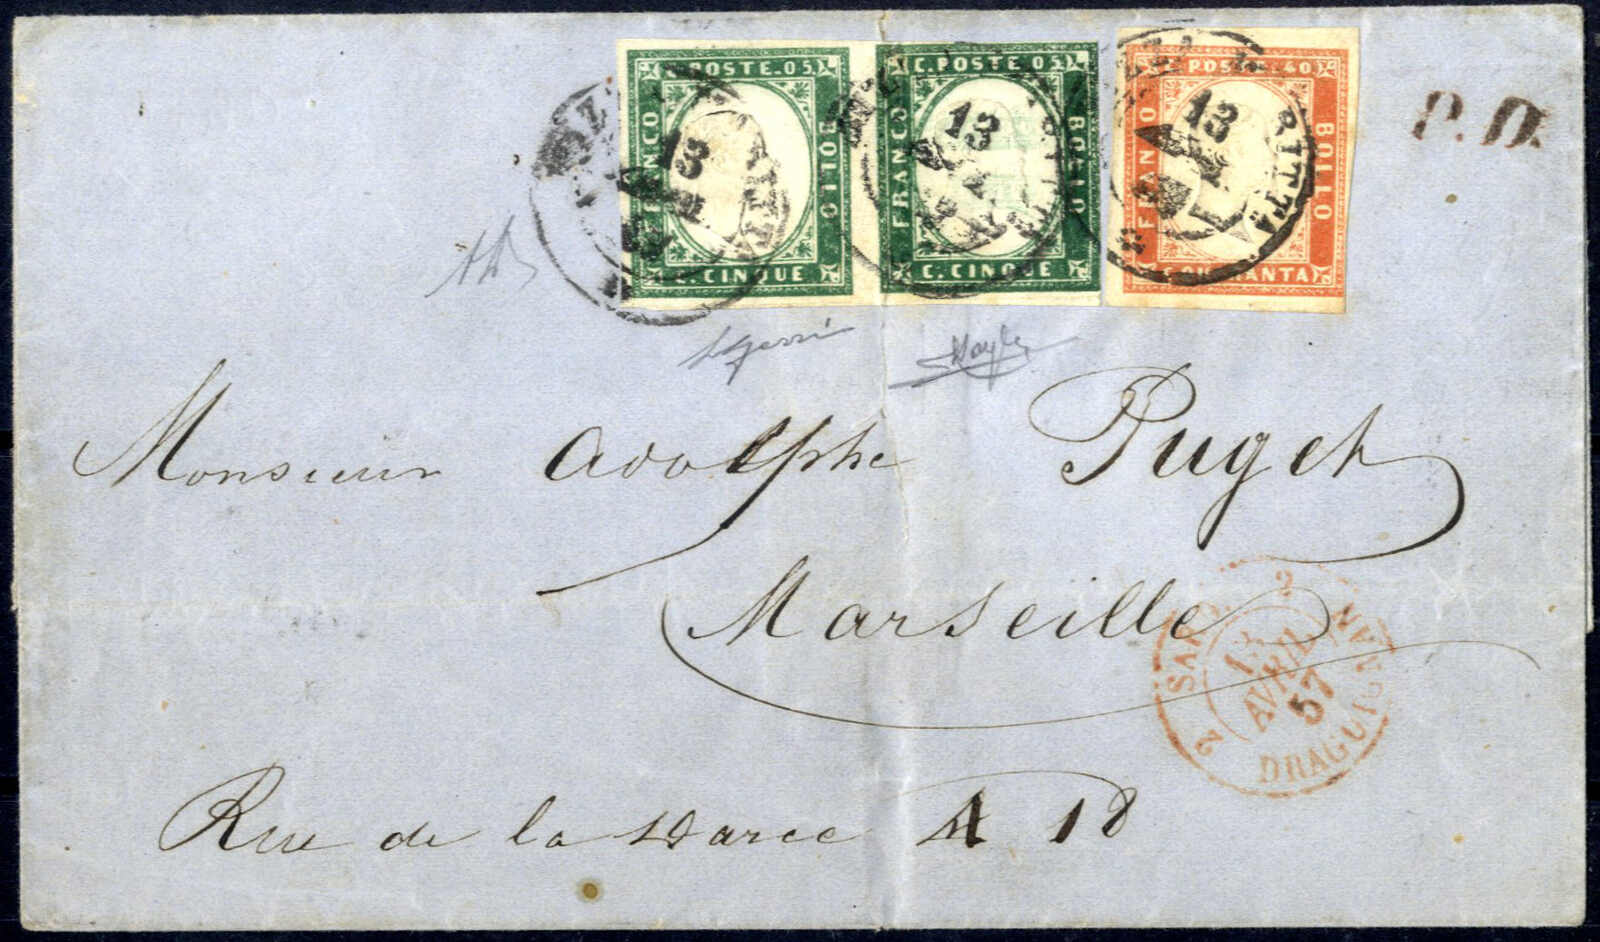 C. POSTE. 05
FRANCO
BOLLO
C. CINQUE
C. POSTE 05
FRANCO
BOLLO
C. CINQUE
13
C. POSTE 40
FRANCO
BOLLO
C. QUARANTA
13
RITTA
P.D.
Monsieur Adolphe Puget
Marseille
Rue de la Darce 18
2 SARD. 2
13
AVRIL
57
DRAGUIGNAN